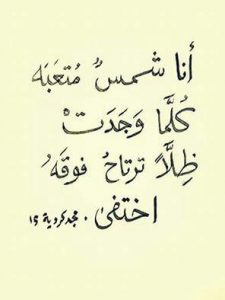 أنا شمسٌ مُتعَبَه
كُلَّما وَجَدَتْ
ظِلَّاً ترتاحُ فوقَهُ
اختفىٰ . مجد كردية ١٥